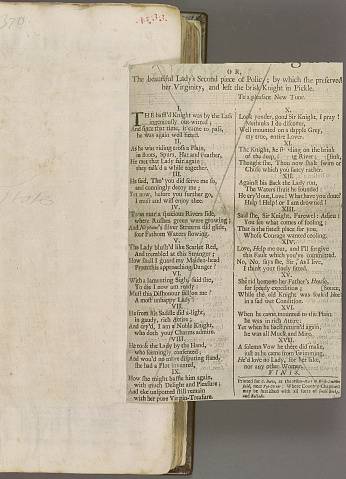 OR,
The beautiful Lady's Second piece of Policy; by which she preserved
her Virginity, and left the brisk Knight in Pickle.
To a pleasant New Tune.
I.
THE baffl'd Knight was by the Lass
ingenuously out-witted;
And since that time, it came to pass,
he was again well fitted.
II.
As he was riding cross a Plain,
in Boots, Spurs, Hat and Feather,
He met that Lady fair again
they talk'd a while together.
III.
He said, Tho' you did serve me so,
and cunningly decoy me;
Yet now, before you further go,
I must and will enjoy thee.
IV.
'Twas near a spacious Rivers side,
where Rushes green were growing;
And silver Streams did glide,
four Fathom Waters flowing.
V.
The Lady blush'd like Scarlet Red,
And trembled at this Stranger;
How shall I guard my Maiden-head
From this approaching Danger?
VI.
With a lamenting Sigh, said she,
To die I now am ready:
Must this Dishonour fall on me?
A most unhappy Lady!
VII.
He from his Saddle did a-light,
in gaudy, rich Attire;
And cry'd, I am a Noble Knight,
who doth your Charms admire.
VIII.
He took the Lady by the Hand,
who seemingly consented;
And wou'd no more disputing stand,
she had a Plot invented,
IX.
How she might baffle him again,
with much Delight and Pleasure;
And eke unspotted still remain
with her pure Virgin-Treasure.
X.
Look yonder, good Sir Knight, I pray!
Methinks I do discover,
Well mounted on a dapple Grey,
my true, entire Lover.
XI.
The Knight, he standing on the brink
of the deep, River;
Thought she, Thou now shalt swim or sink,
Chuse which you fancy rather.
XII.
Against his Back the Lady run,
The Waters strait he sounded
He cry'd out, Love! What have you done?
Help! Help! or I am drowned!
XIII.
Said she, Sir Knight, Farewel: Adieu!
You see what comes of fooling;
That is the fittest place for you,
Whose Courage wanted cooling.
XIV.
Love, Help me out, and I'll forgive
this Fault which you've committed.
No, No, says she, Sir, As I live,
I think your finely fitted.
XV.
She rid home to her Father's House,
for speedy expedition;
While the old Knight was soaked like
in a sad Condition.
XVI.
When he came mounted to the Plain
he was in rich Attire;
Yet when he back return'd again,
he was all Muck and Mire.
XVII.
A solemn Vow he there did make,
just as he came from Swimming,
He'd love no Lady, for her sake,
nor any other Women.
FINIS.